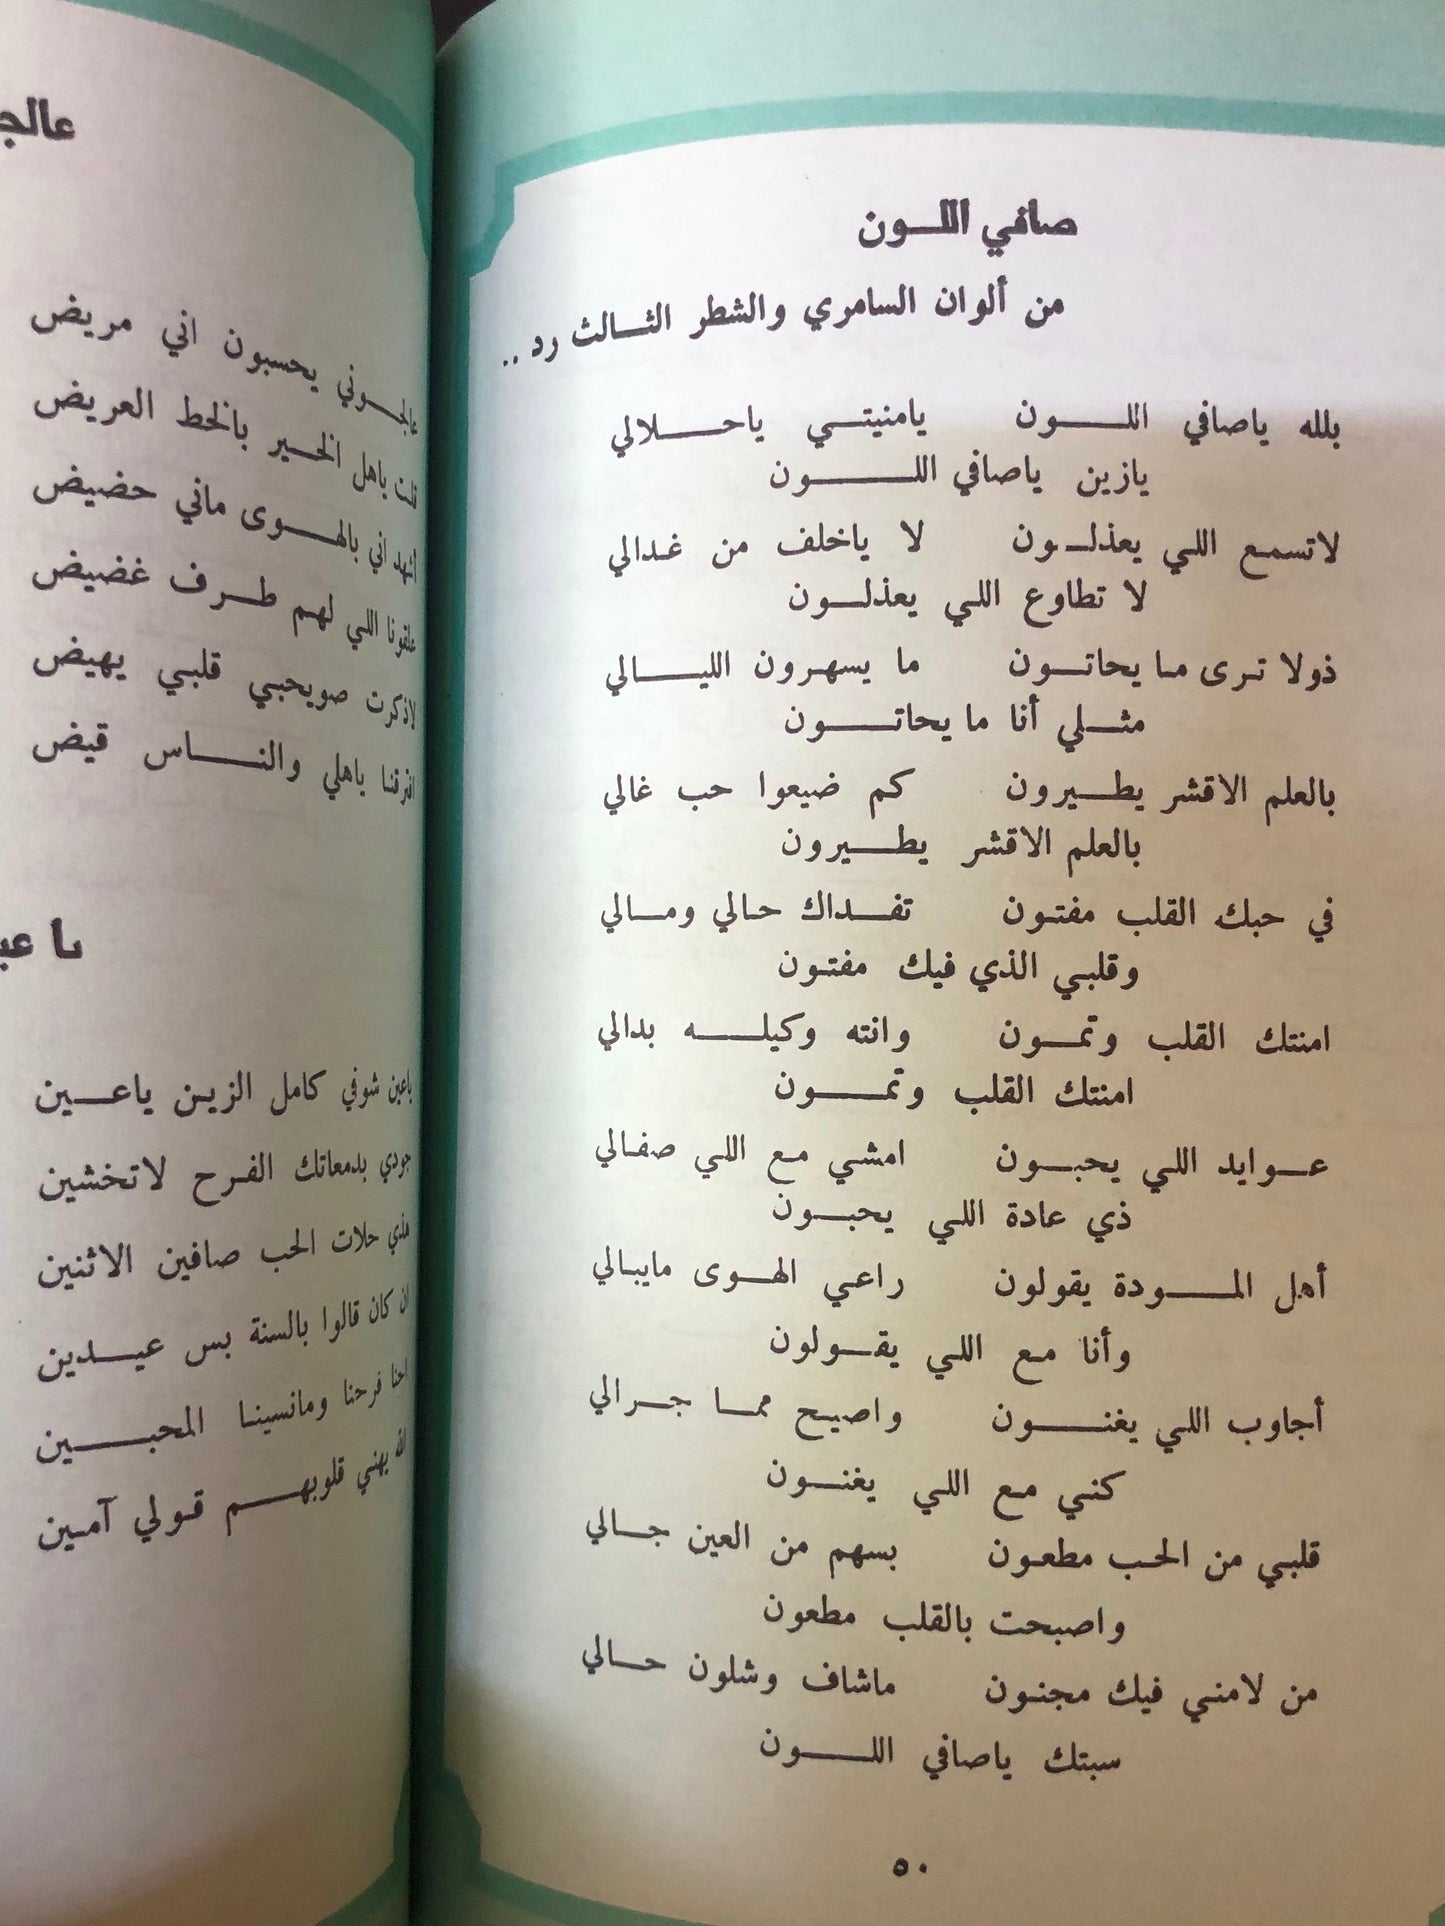 صافي اللون
من ألوان السامري والشطر الثالث رد ..
بلله ياصافي اللون يامنيتي ياحلالي
يازين ياصافي اللون
لاتسمع اللي يعذلون لا ياخلف من غدالي
لا تطاوع اللي يعذلون
ذولا ترى ما يحاتون ما يسهرون الليالي
مثلي أنا ما يحاتون
بالعلم الاقشر يطيرون كم ضيعوا حب غالي
بالعلم الاقشر يطيرون
في حبك القلب مفتون تفداك حالي ومالي
وقلبي الذي فيك مفتون
امنتك القلب وتمون وانته وكيله بدالي
امنتك القلب وتمون
عوايد اللي يحبون امشي مع اللي صفالي
ذي عادة اللي يحبون
أهل المودة يقولون راعي الهوى مايبالي
وأنا مع اللي يقولون
أجاوب اللي يغنون واصيح مما جرالي
كني مع اللي يغنون
قلبي من الحب مطعون بسهم من العين جالي
واصبحت بالقلب مطعون
من لامني فيك مجنون ماشاف وشلون حالي
سبتك ياصافي اللون
٥٠
عالجوني يحسبون اني مريض
قلت ياهل الخير بالخط العريض
أشهد اني بالهوى ماني حضيض
علقونا اللي لهم طرف غضيض
لاذكرت صويحبي قلبي يهيض
افترقنا ياهلي والناس قيض
يا
ياعين شوفي كامل الزين ياعين
جودي بدمعاتك الفرح لاتخشين
هذي حلات الحب صافين الاثنين
ان كان قالوا بالسنة بس عيدين
احنا فرحنا ومانسينا المحبين
الله يهني قلوبهم قولي آمين